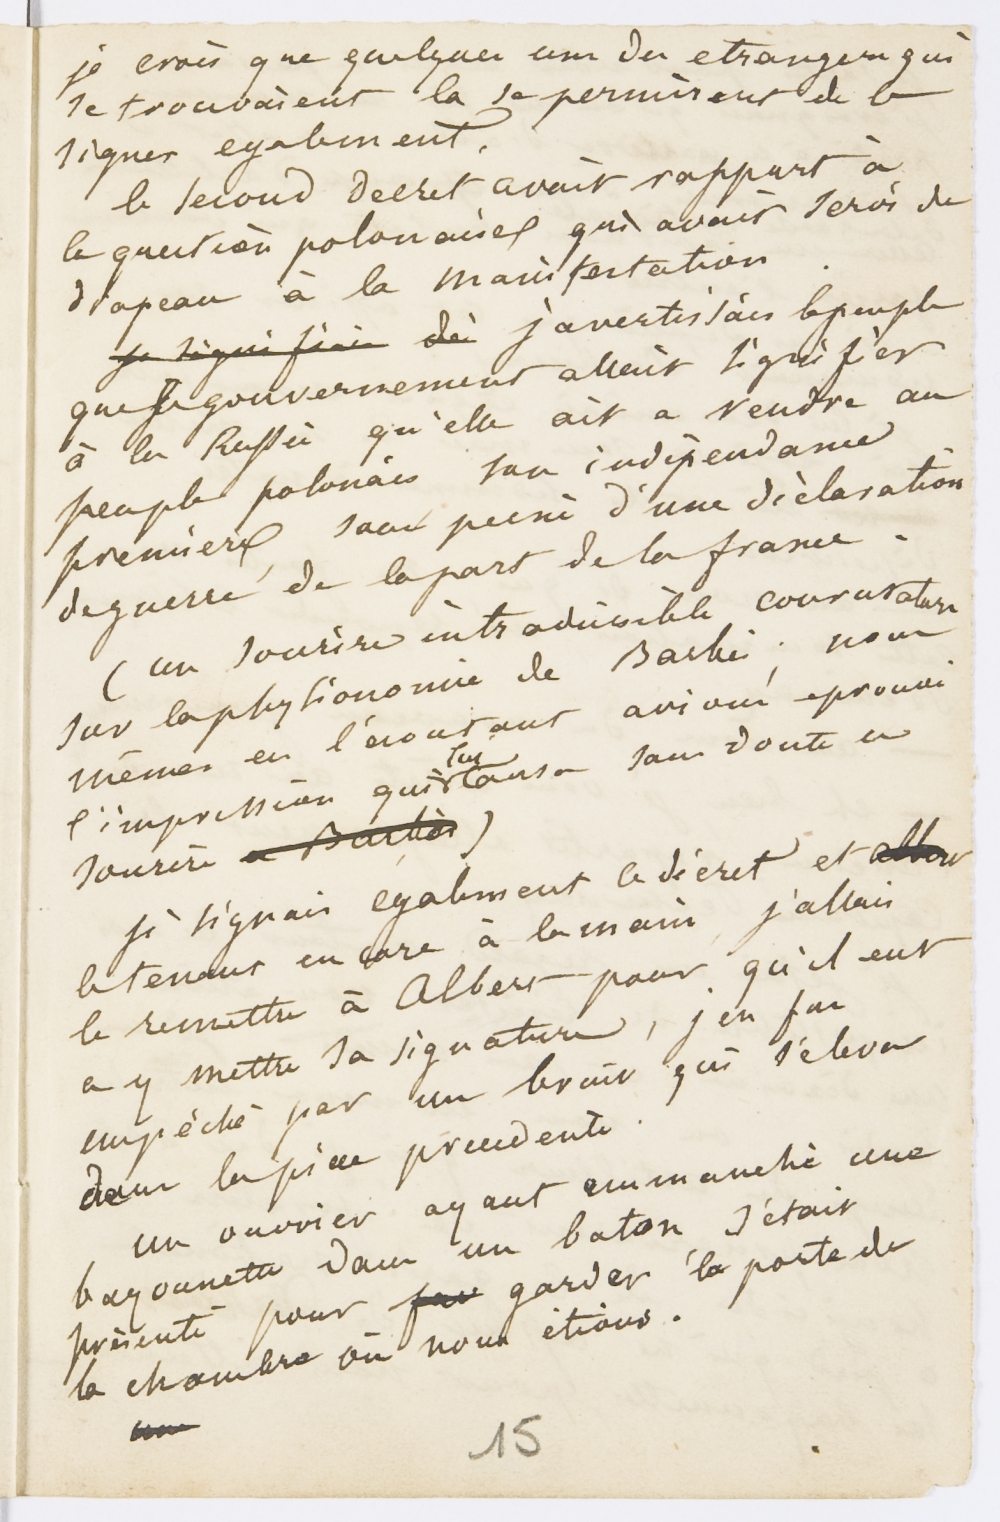 je crois que quelques uns des etrangers qui
se trouvaient la se permirent de le
signer egalement.
le second decret avait rapport à
la question polonaise qui avait servi de
drapeau à la manifestation.
je signifiais de j'avertissais le peuple
que le gouvernement allait signifier
à la Russie qu'elle ait a rendre au
peuple polonais son indépendance
premiere, sous peine d'une déclaration
de guerre de la part de la france.
(un sourire intraduisible courut alors
sur la physionomie de Barbès; nous
mêmes en l'écoutant avions eprouvé
l'impression qui lui causa sans doute ce
sourire a Barbès)
je signais egalement ce décret et albert
le tenant encore à la main, j'allais
le remettre à Albert pour qu'il eut
a y mettre sa signature, j'en fus
empêché par un bruit qui s'éleva
dans la pièce precedente.
un ouvrier ayant emmanché une
bayounette dans un baton s'était
présenté pour garder la porte de
la chambre où nous étions.
un
15